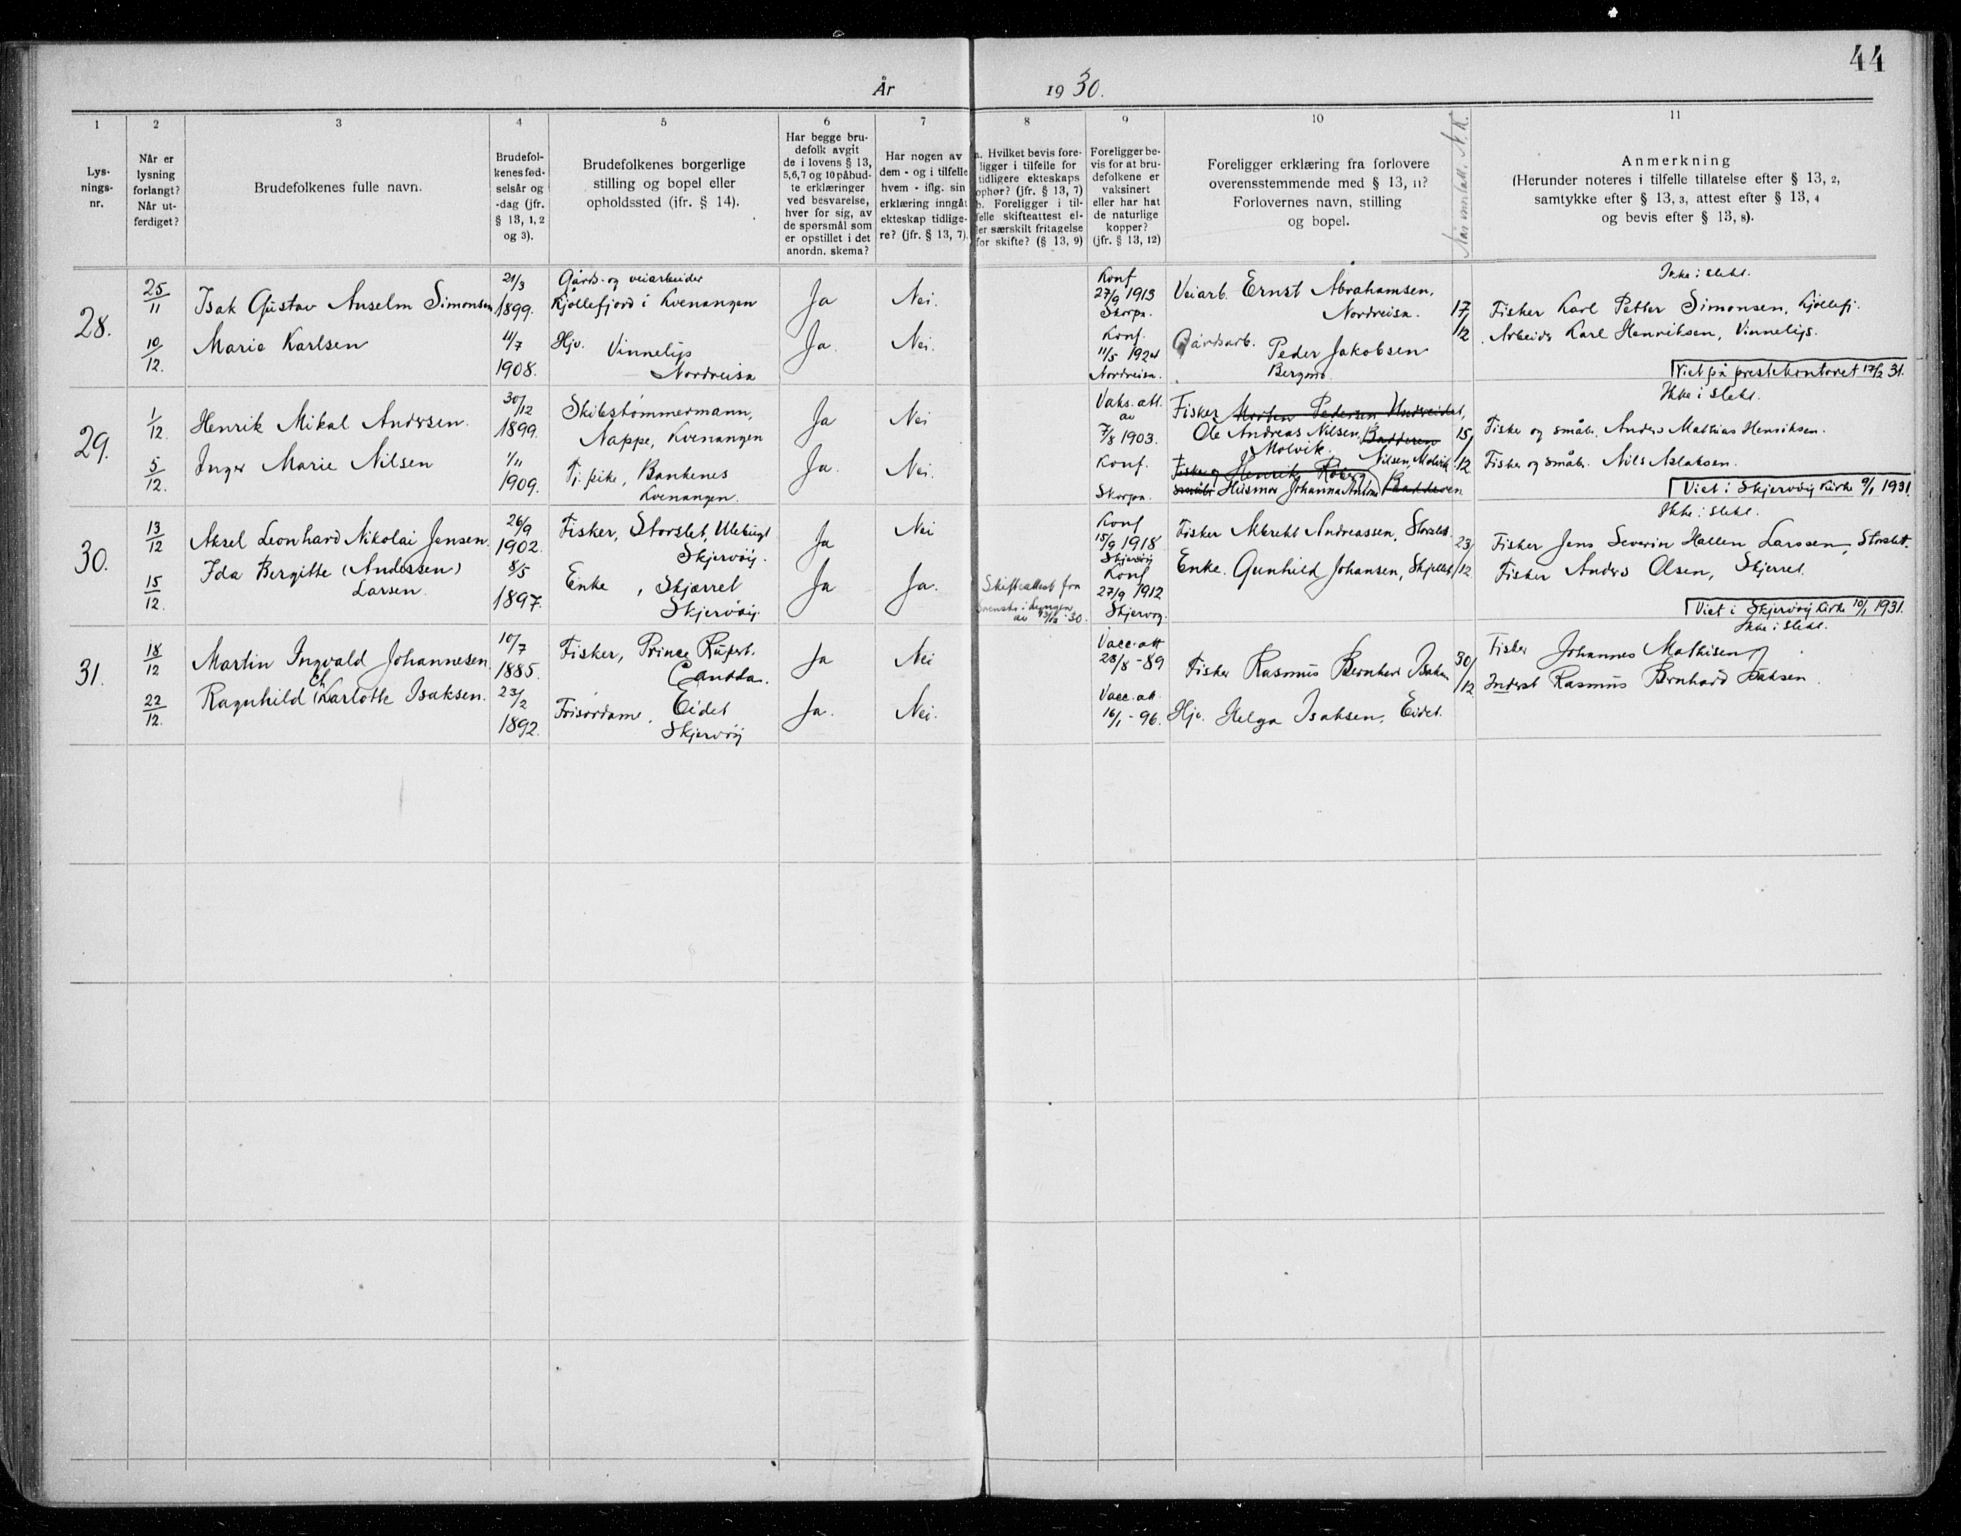 44
År 1930.
1
Lys-
nings-
nr.
2
Når er
lysning
forlangt?
Når ut-
ferdiget?
3
Brudefolkenes fulle navn.
4
Brudefol-
kenes fød-
selsår og
-dag (jfr.
§ 13, 1, 2
og 3).
5
Brudefolkenes borgerlige
stilling og bopel eller
opholdssted (jfr. § 14).
6
Har begge bru-
defolk avgit
de i lovens § 13,
5, 6, 7 og 10 påbud-
te erklæringer
ved besvarelse,
hver for sig, av
de spørsmål som
er opstillet i det
anordn. skema?
7
Har nogen av
dem - og i tilfelle
hvem - iflg. sin
erklæring inngåt
ekteskap tidlige-
re? (jfr. § 13, 7).
8
a. Hvilket bevis fore-
ligger i tilfelle for
tidligere ekteskaps
ophør? (jfr. § 13, 7)
b. Foreligger i til-
felle skifteattest el-
ler særskilt fritagelse
for skifte? (§ 13, 9)
9
Foreligger be-
vis for at bru-
defolkene er
vaksinert
eller har hat
de naturlige
kopper?
(jfr. § 13, 12)
10
Foreligger erklæring fra forlovere
overensstemmende med § 13, 11?
Forlovernes navn, stilling
og bopel.
11
Anmerkning
(Herunder noteres i tilfelle tillatelse efter § 13, 2,
samtykke efter § 13, 3, attest efter § 13, 4
og bevis efter § 13, 8).
28.
25/11
Isak Gustav Anselm Simonsen
21/3
1899.
Gårds- og veiarbeider
Kjøllefjord i Kvenangen
Ja
Nei.
Konf
27/9 1913
Skorpa.
Veiarb. Ernst Abrahamsen,
Nordreisa.
17/12
Ikke i slekt.
Fisker Karl Petter Simonsen, Kjøllefj.
10/12.
Marie Karlsen
4/7
1908.
Hjv. Vinnelys
Nordreisa
Ja.
Nei.
Konf.
11/5 1924
Nordreisa.
Gårdsarb. Peder Jakobsen
Bergmo.
Arbeids Karl Henriksen, Vinnelys.
Viet på prestekontoret 17/2 31.
29.
1/12.
Henrik Mikal Andersen.
30/12
1899.
Skibstømmermann,
Nappe, Kvenangen
Ja
Nei
Vaks. att.
av
7/8 1903.
Fisker Morten Pedersen Undereidet,
Ole Andreas Nilsen, Badderen
Molvik.
15/12
Ikke i slekt.
Fisker og småbr. Anders Mathias Henriksen.
5/12.
Inger Marie Nilsen
1/11
1909.
Tj. pike, Bankenes
Kvenangen.
Ja.
Nei.
Konf.
Skorpa.
Fisker og Henrik Roberg Nilsen, Molvik
småbr Husmor Johanna Badderen
Fisker og småbr. Nils Aslaksen.
Viet i Skjervøy Kirke 9/1 1931.
30.
13/12
Aksel Leonhard Nikolai Jensen.
26/9
1902.
Fisker, Storslet, Ulebugt
Skjervøy.
Ja
Nei
Konf
15/9 1918
Skjervøy
Fisker Albrekt Andreassen, Storslet.
23/12
Ikke i slekt.
Fisker Jens Severin Hallen Larssen, Storslett.
15/12.
Ida Bergitte (Andersen)
Larsen.
8/5
1897.
Enke, Skjærret
Skjervøy.
Ja
Ja.
Skifteattest fra
i Lyngen
av 13/12 - 30.
Konf
27/9 1912
Skjervøy
Enke. Gunhild Johansen,
Fisker Anders Olsen, Skjerret.
Viet i Skjervøy Kirke 10/1 1931.
31.
18/12
Martin Ingvald Johannesen
10/7
1885.
Fisker, Prince Rupert.
Canada.
Ja
Nei
Vacc. att
28/8 - 89
Fisker Rasmus Bernhard Isaksen
30/12
Ikke i slekt.
Fisker Johannes Mathisen
22/12.
Ragnhild Charlotte Isaksen.
23/2
1892.
Frisørdame, Eidet
Skjervøy
Ja.
Nei.
Vacc. att.
16/1 - 96.
Hjv. Helga Isaksen, Eidet.
Inderst Rasmus Bernhard Isaksen.